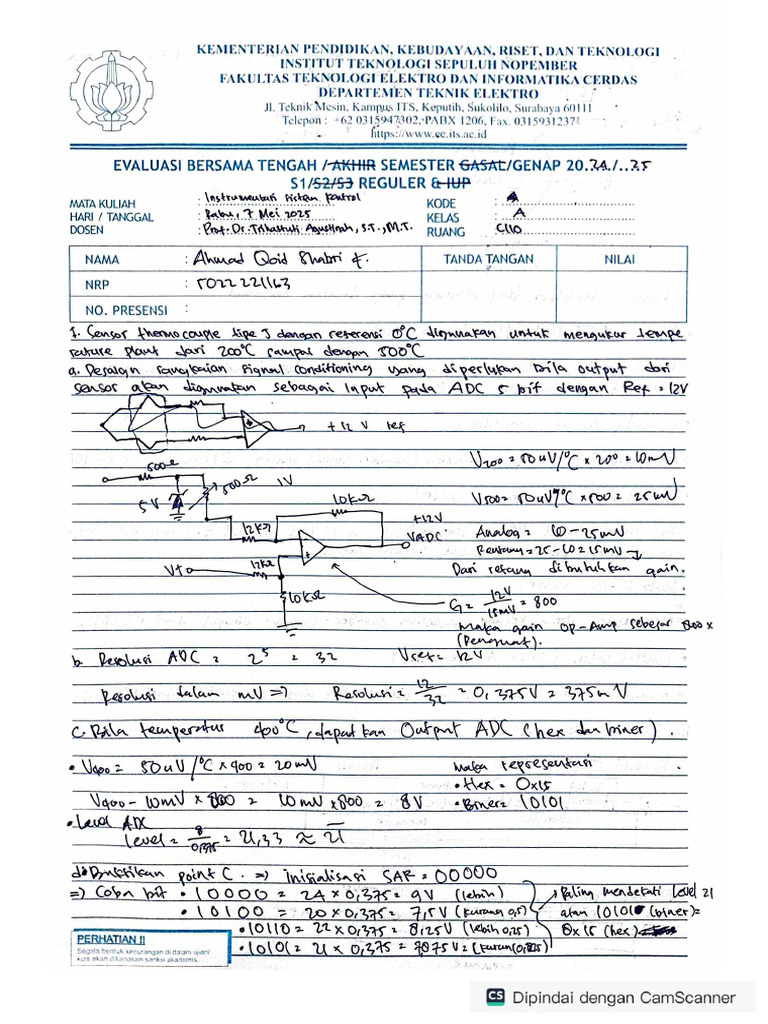 KEMENTERIAN PENDIDIKAN, KEBUDAYAAN, RISET, DAN TEKNOLOGI
INSTITUT TEKNOLOGI SEPULUH NOPEMBER
FAKULTAS TEKNOLOGI ELEKTRO DAN INFORMATIKA CERDAS
DEPARTEMEN TEKNIK ELEKTRO
Jl. Teknik Mesin, Kampus ITS, Keputih, Sukolilo, Surabaya 60111
Telepon : +62 0315947302, PABX 1206, Fax. 0315931237
https://www.ee.its.ac.id
EVALUASI BERSAMA TENGAH /AKHIR SEMESTER GASAL/GENAP 20.24./..25
S1/S2/S3 REGULER & IUP
MATA KULIAH : Instrumentasi Sistem Kontrol KODE : A
HARI / TANGGAL : Rabu, 7 Mei 2025 KELAS : A
DOSEN : Prof. Dr. Trihastuti Agustinah, S.T., M.T. RUANG : C110
NAMA : Ahmad Qoid Shabri F. TANDA TANGAN NILAI
NRP : 5022221163
NO. PRESENSI :
1. Sensor thermocouple tipe J dengan referensi 0°C digunakan untuk mengukur tempe
rature plant dari 200°C sampai dengan 500°C
a. Desaign rangkaian signal conditioning yang diperlukan bila output dari
sensor akan digunakan sebagai input pada ADC 5 bit dengan Ref = 12V
+12 V ref
V200 = 50 uV/°C × 200 = 10mV
500Ω
500Ω 1V
5V
V500 = 50uV/°C × 500 = 25mV
10kΩ
12kΩ
+12V
VADC
Analog = 10 - 25mV
Rentang = 25 - 10 = 15mV
V+
12kΩ
Dari retang dibutuhkan gain.
10kΩ
G = 12V/15mV = 800
Maka gain op-Amp sebesar 800 x
(Penguat).
b. Resolusi ADC = 2^5 = 32 Vref = 12V
Resolusi dalam mV => Resolusi = 12/32 = 0,375V = 375mV
c. Bila temperatur 400°C, dapatkan Output ADC (hex dan biner).
• V400 = 50 uV/°C × 400 = 20mV
Maka representasi
• Hex = 0x15
V400 - 10mV × 800 = 10mV × 800 = 8V
• Biner = 10101
• Level ADC
level = 8/0,375 = 21,33 ≈ 21
d. Buktikan point C. => Inisialisasi SAR = 00000
=> Coba bit • 10000 = 24 × 0,375 = 9V (lebih)
Paling mendekati level 21
• 10100 = 20 × 0,375 = 7,5V (kurang 0,5)
atau 10101 (biner) =
• 10110 = 22 × 0,375 = 8,25V (lebih 0,25)
0x15 (hex)
• 10101 = 21 × 0,375 = 7,875V = (kurang 0,125)
PERHATIAN !!
Segala bentuk kecurangan di dalam ujian/
kuis akan dikenakan sanksi akademis.
CS Dipindai dengan CamScanner